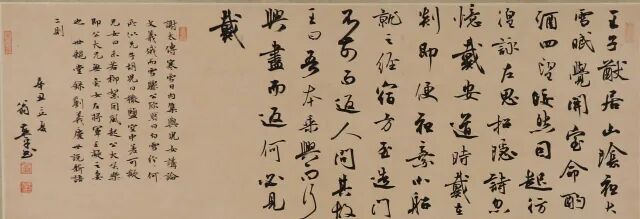 王子猷居山陰夜大
雪眠覺開室命酌
酒四望皎然因起彷
徨詠左思招隱詩忽
憶戴安道時戴在
剡即便夜乘小船
就之經宿方至造門
不前而返人問其故
王曰吾本乘興而行
興盡而返何必見
戴
謝太傅寒雪日內集與兒女講論
文義俄而雪驟公欣然曰白雪紛紛何
所似兄子胡兒曰撒鹽空中差可擬
兄女曰未若柳絮因風起公大笑樂
即公大兄無奕女左將軍王凝之妻
也 堂錄劉義慶世說新語
二則
辛丑立夏
翁